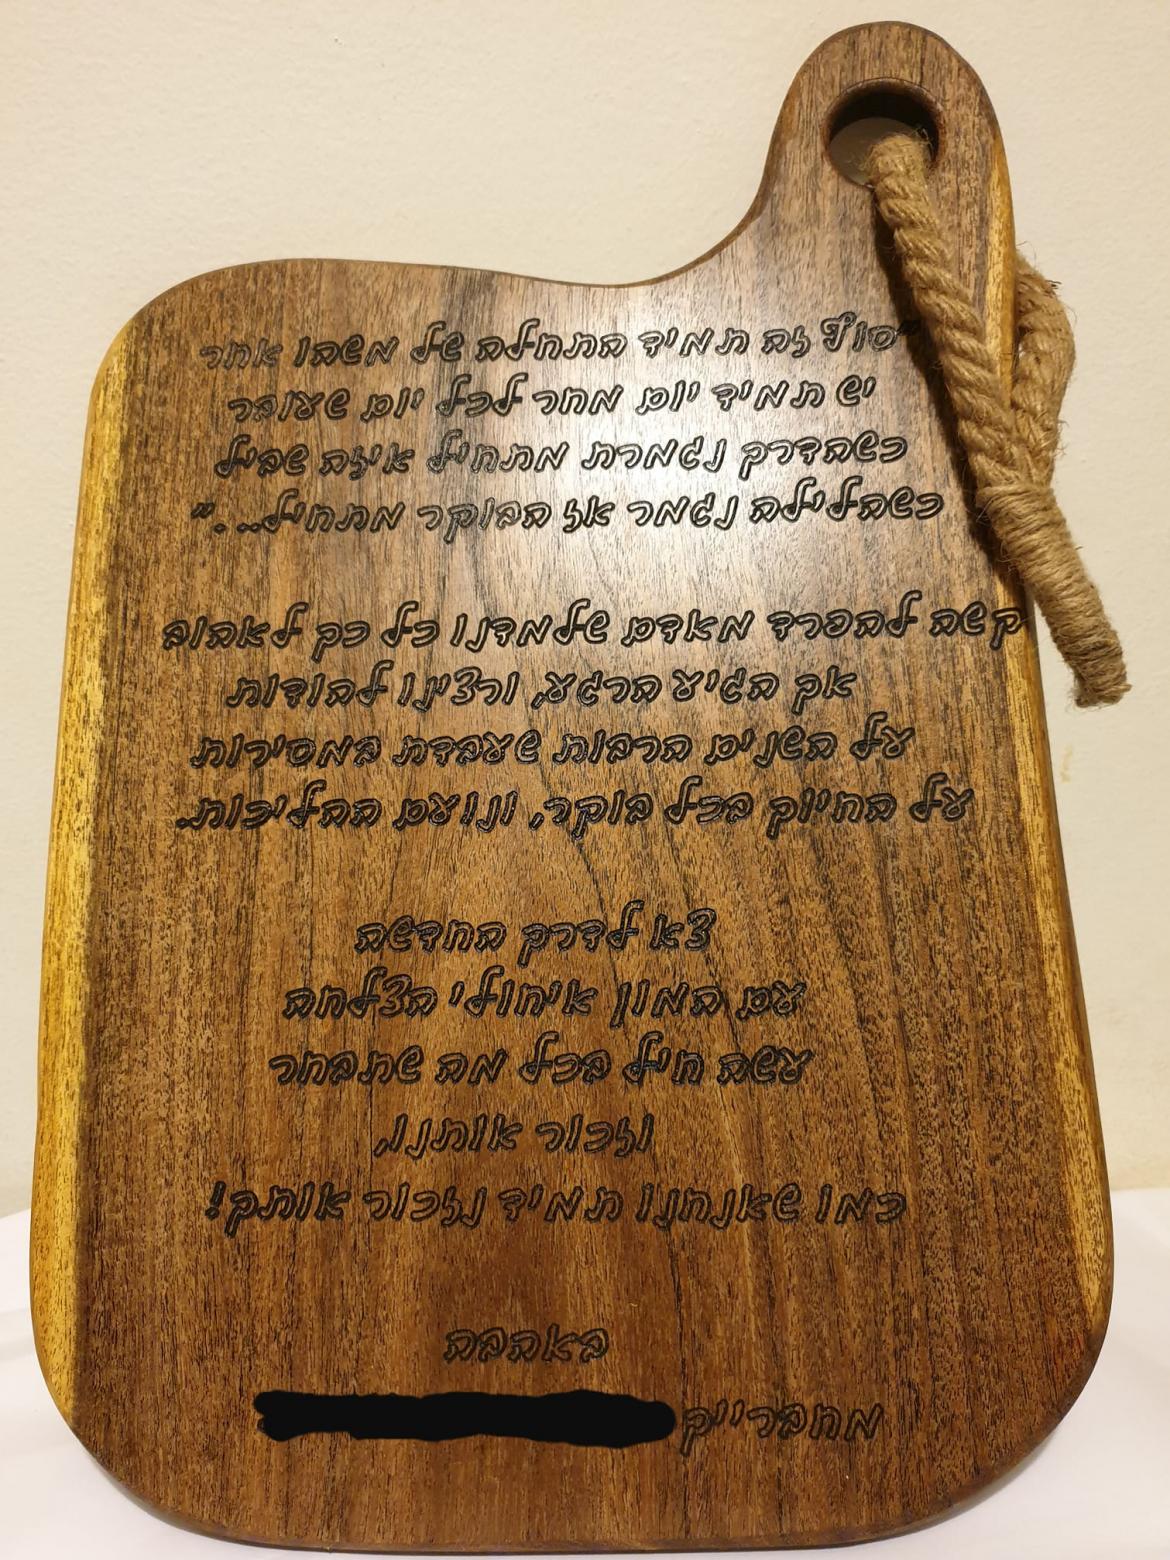 "סוף זה תמיד התחלה של משהו אחר
יש תמיד יום מחר לכל יום שעובר
כשהדרך נגמרת מתחיל איזה שביל
כשהלילה נגמר אז הבוקר מתחיל..."
קשה להפרד מאדם שלמדנו כל כך לאהוב
אך הגיע הרגע, ורצינו להודות
על השנים הרבות שעבדת במסירות
על החיוך בכל בוקר, ונועם ההליכות.
צא לדרך החדשה
עם המון איחולי הצלחה
עשה חיל בכל מה שתבחר
וזכור אותנו,
כמו שאנחנו תמיד נזכור אותך!
באהבה
מחברייך